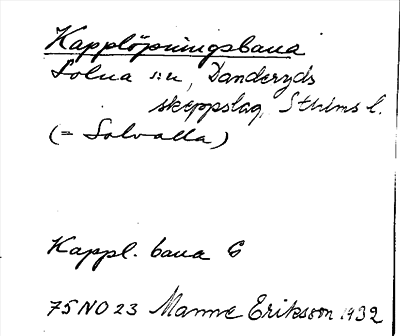 Kapplöpningsbana
Solna s:n, Danderyds
skeppslag, Sthlms l.
(= Solvalla)
Kappl. bana G
75NO23 Manne Eriksson 1932